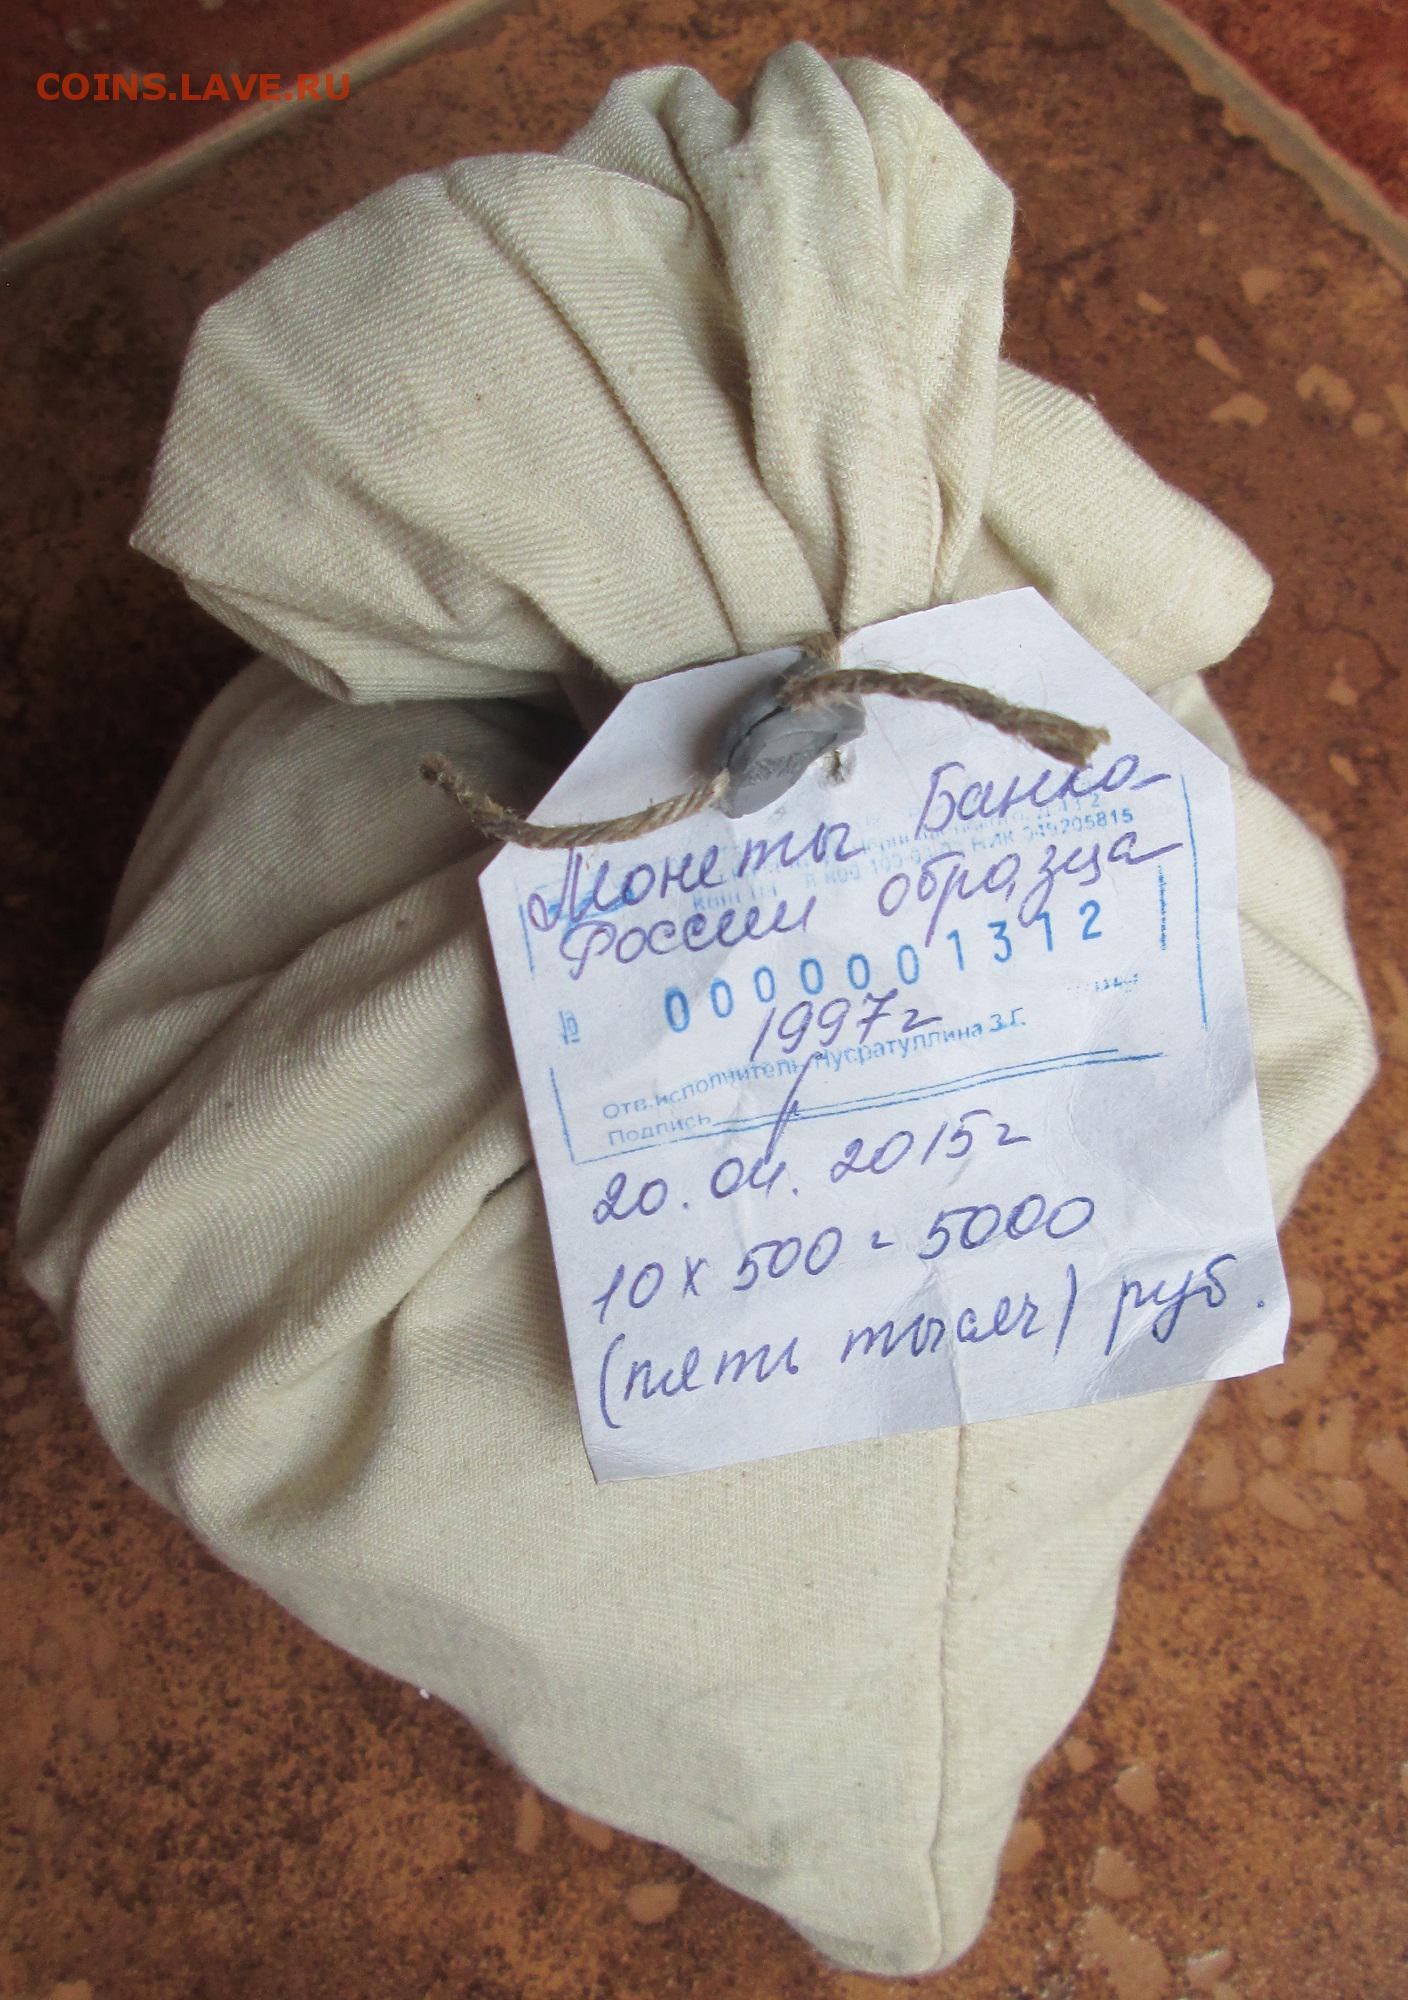 COINS.LAVE.RU
Монеты Банка
049205815
России образца
№ 0000001312
1997г
Отв.исполнитель Нусратуллина З.Г.
Подпись
20.04.2015г
10 х 500 = 5000
(пять тысяч) руб.